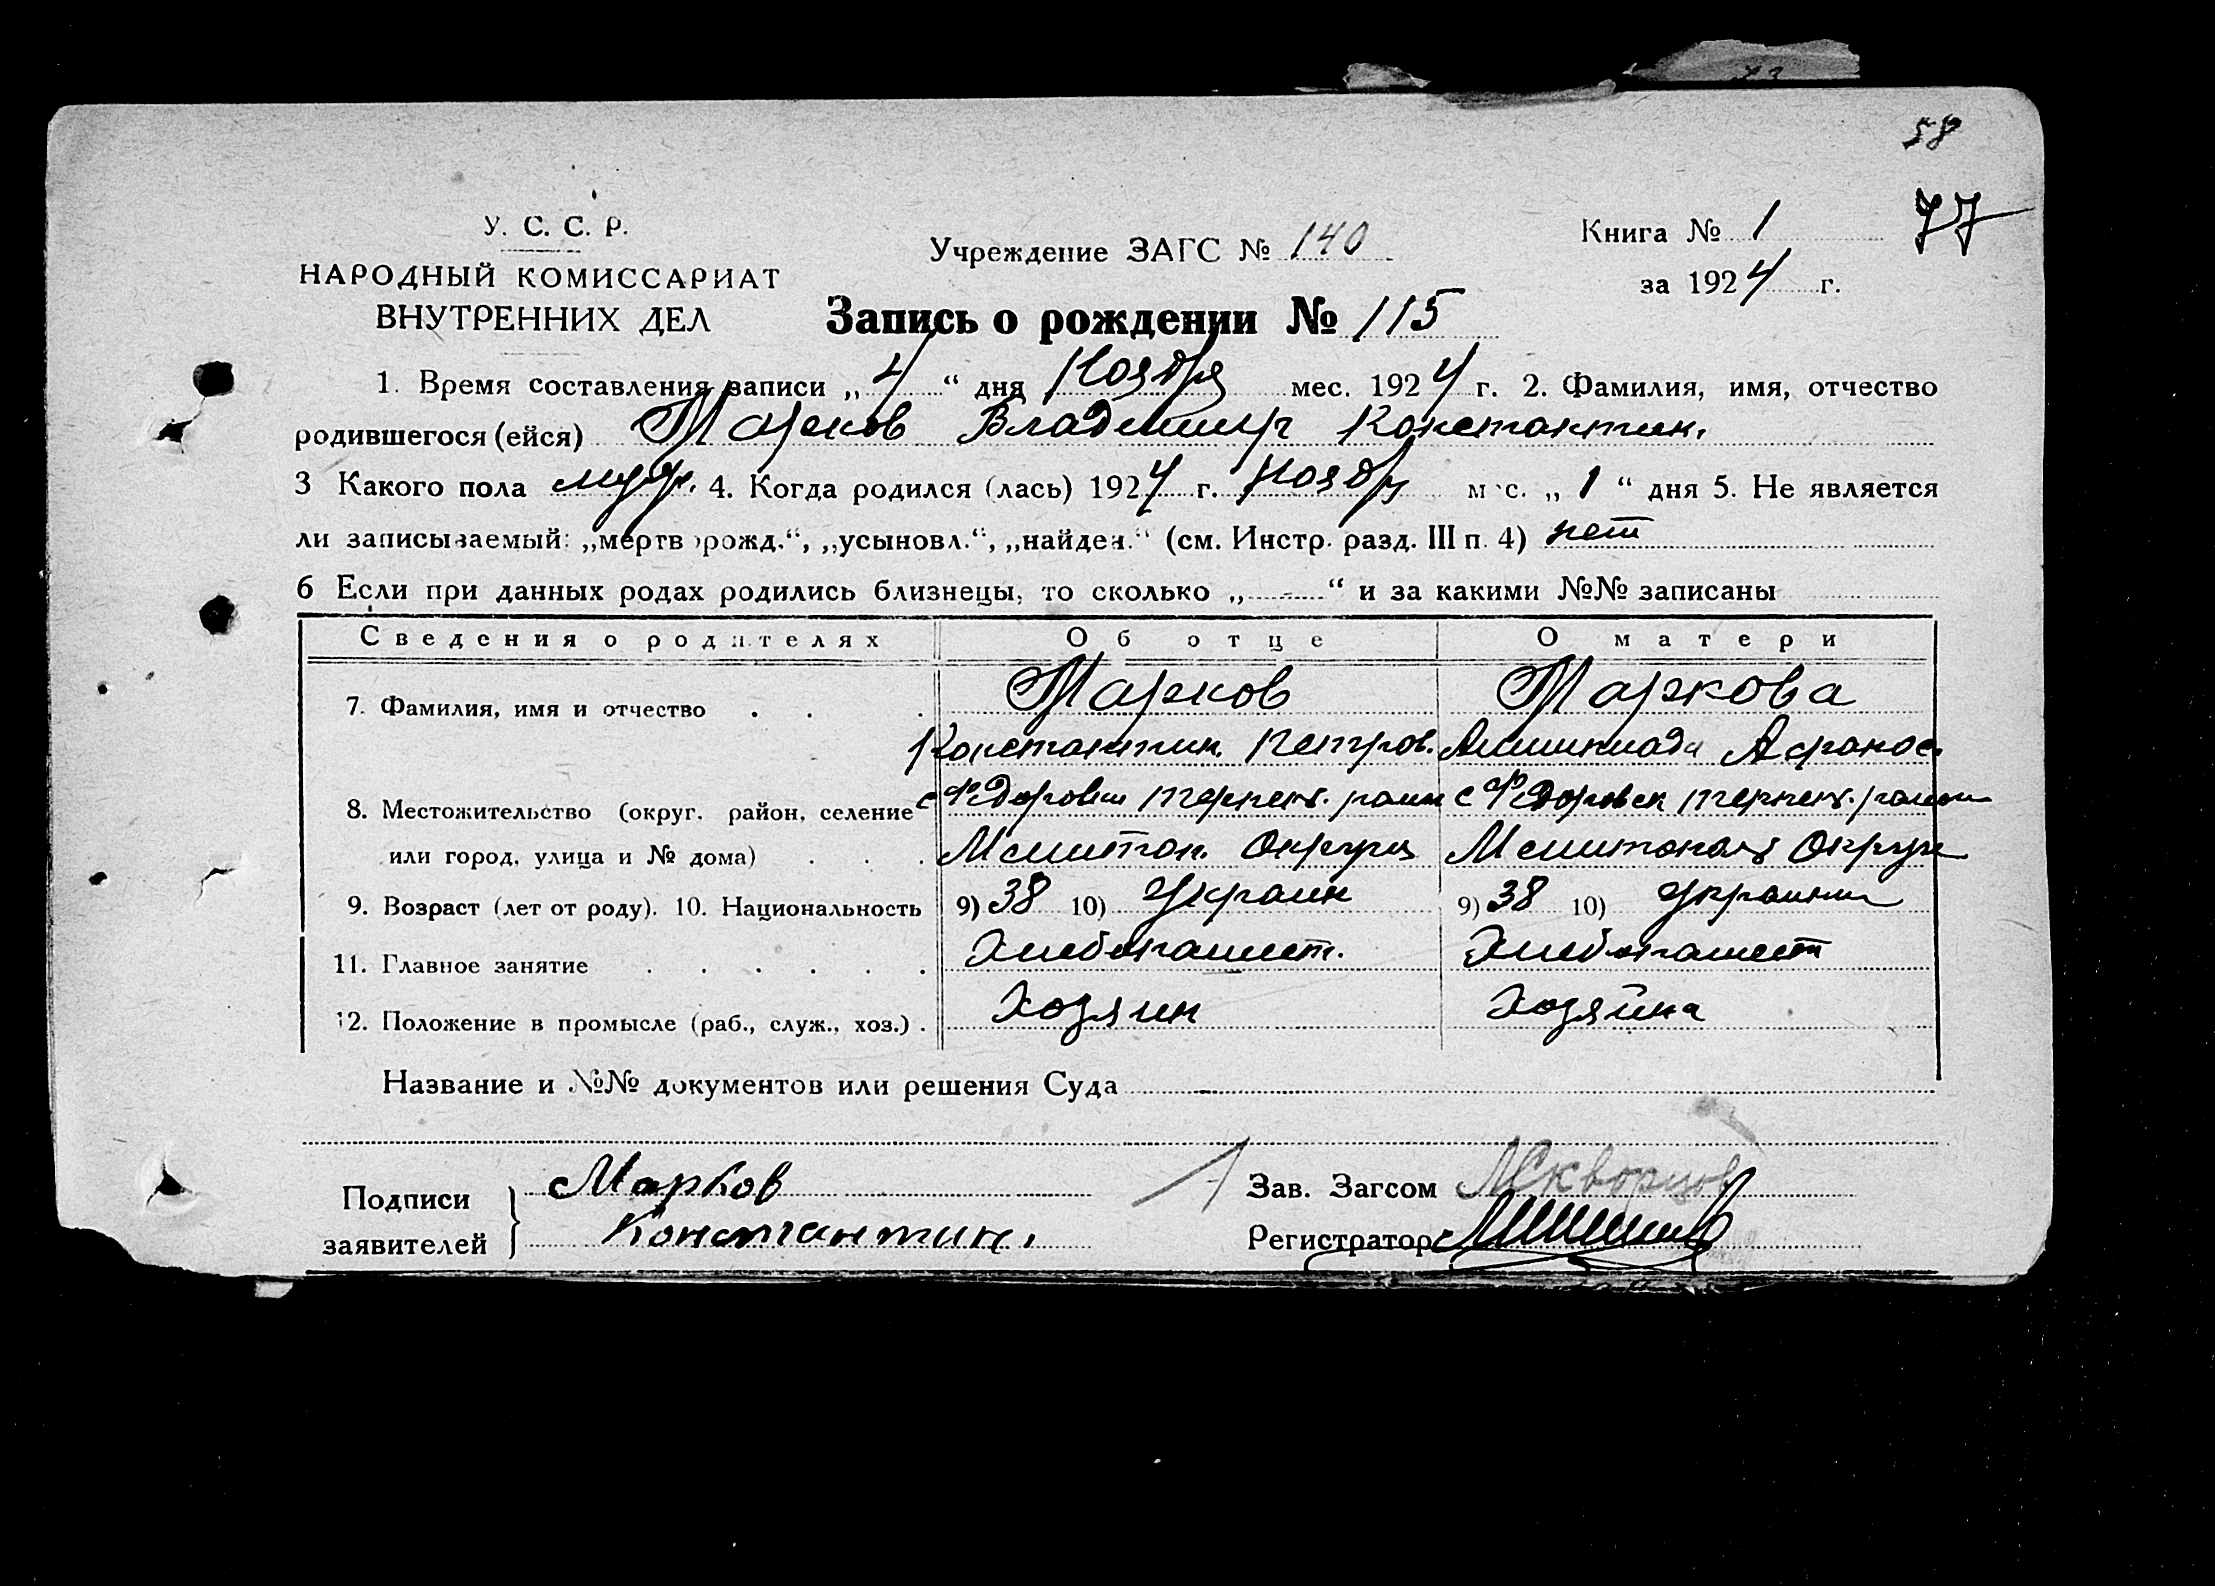 58
77
У. С. С. Р.
НАРОДНЫЙ КОМИССАРИАТ
ВНУТРЕННИХ ДЕЛ
Учреждение ЗАГС № 140
Книга № 1
за 1924 г.
Запись о рождении № 115
1. Время составления записи „4“ дня Ноября мес. 1924 г. 2. Фамилия, имя, отчество
родившегося (ейся) Марков Владимир Константин.
3 Какого пола муж. 4. Когда родился (лась) 1924 г. Ноябр мес. „1“ дня 5. Не является
ли записываемый: „мертворожд.“, „усыновл.“, „найден.“ (см. Инстр. разд. III п. 4) нет
6 Если при данных родах родились близнецы, то сколько „-“ и за какими №№ записаны
Сведения о родителях Об отце О матери
7. Фамилия, имя и отчество Марков Маркова
Константин. Петров.
8. Местожительство (округ, район, селение с Терпен. с Терпен.
или город, улица и № дома) Мелитоп. Округа Округа
9. Возраст (лет от роду). 10. Национальность 9) 38 10) Украин 9) 38 10)
11. Главное занятие Хлебопашест. Хлебопашест
12. Положение в промысле (раб., служ., хоз.) Хозяин Хозяйка
Название и №№ документов или решения Суда -
Подписи заявителей Марков
Константин.
Зав. Загсом Скворцов
Регистратор